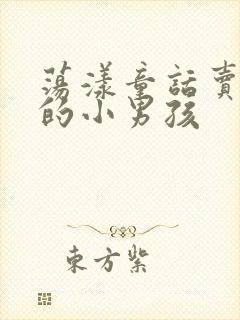 荡漾童話賣
的小男孩
東方紫